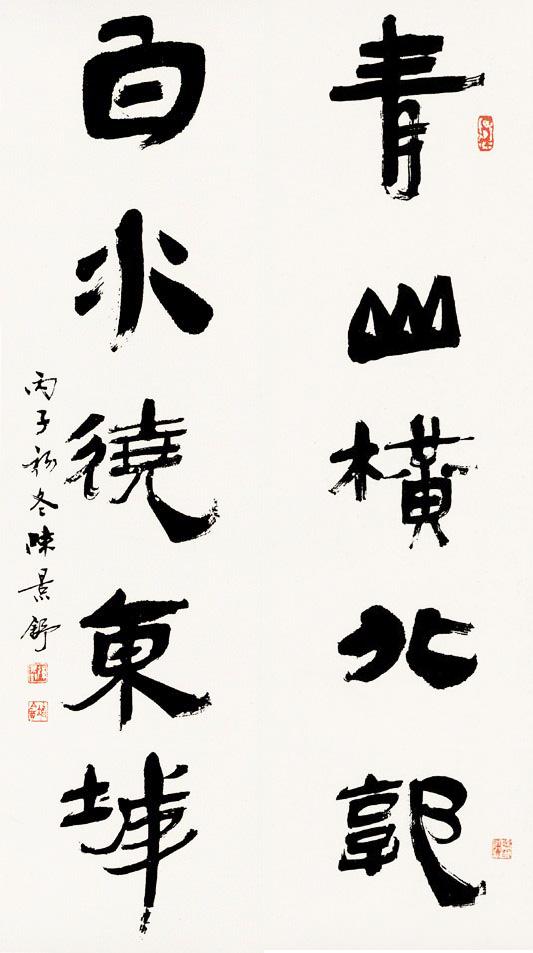 青山橫北郭
白水徺東城
丙子初冬陳景舒